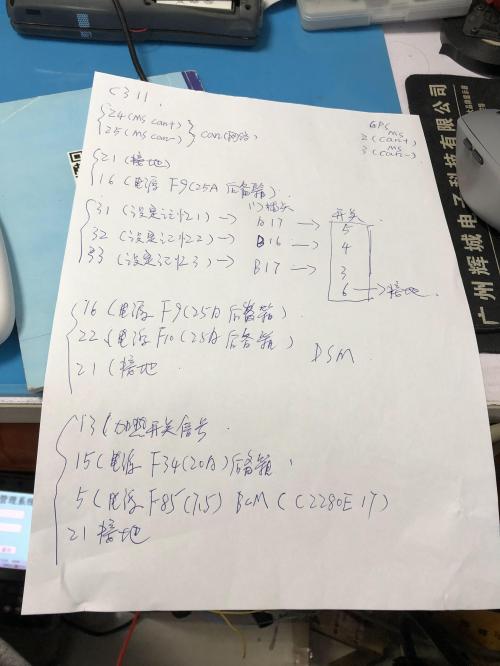 C311
24(MS can+)
25(MS can-)
can(网络)
GPS
2(ms can+)
3(ms can-)
21(接地)
16(电源 F9(25A 后备箱)
插头
开关
31(设定记忆1)→ B17 → 5
32(设定记忆2)→ B16 → 4
33(设定记忆3)→ B17 → 3
6 →接地
16(电源 F9(25A 后备箱)
22(电源 F10(25A 后备箱)
21(接地
DSM
13(加热开关信号
15(电源 F34(20A)后备箱
5(电源 F85(7.5) BCM(C2280E 17)
21 接地
广州辉城电子科技有限公司
管理系统